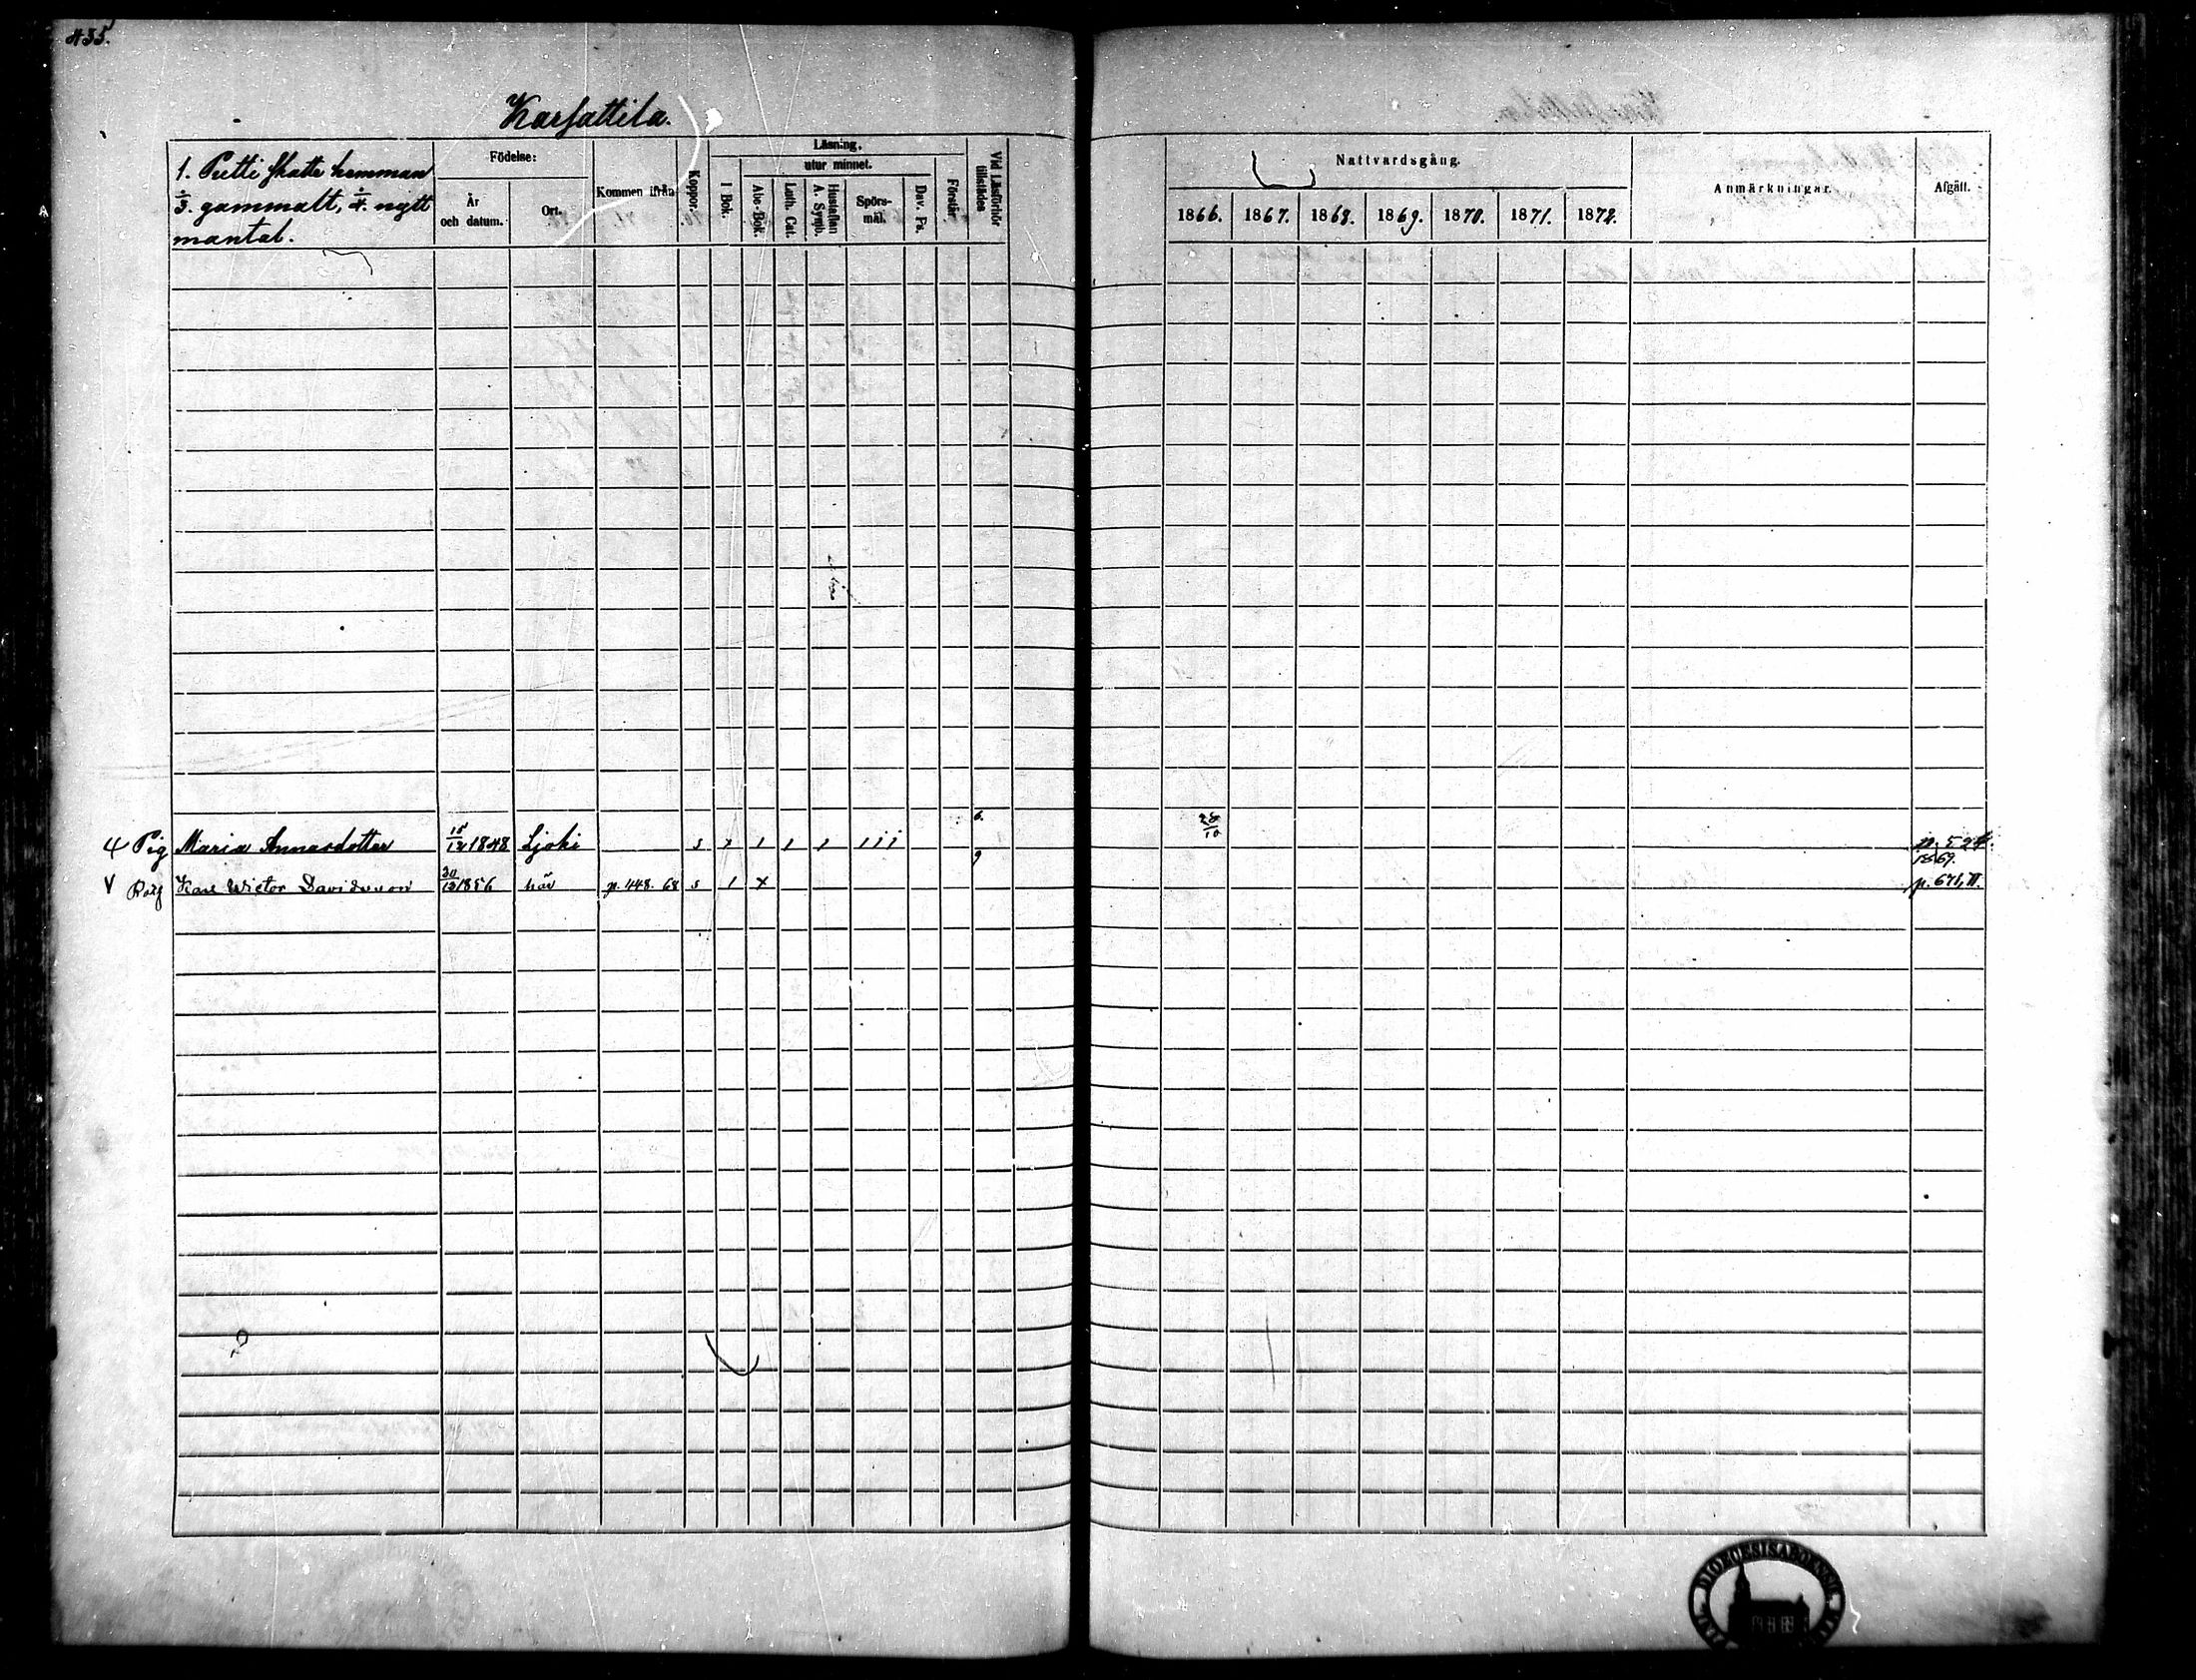 435.
Karsattila.
1. Pietti skatte hemman
1/3. gammalt, 1/4. nytt
mantal.
Födelse:
År och datum.
Ort.
Kommen ifrån
Koppor.
Läsning.
I Bok.
utur minnet.
Abc-Bok.
Luth. Cat.
Hustaflan A. Symb.
Spörs-mål.
Dav. Ps.
Förstår
Vid Läsförhör tillstädes
Nattvardsgång.
1866. 1867. 1868. 1869. 1870. 1871. 1872.
Anmärkningar.
Afgått.
Pig Maria Annasdotter 15/12 1848 Ljoki s x 1 1 1 1 1 1 6. 28/10 p. 524.
Karl Wictor Davidsson 30/12 1856 här p. 448. 68 s 1 x 9 1869. p. 671, II.
DIOECESIS ABOENSIS